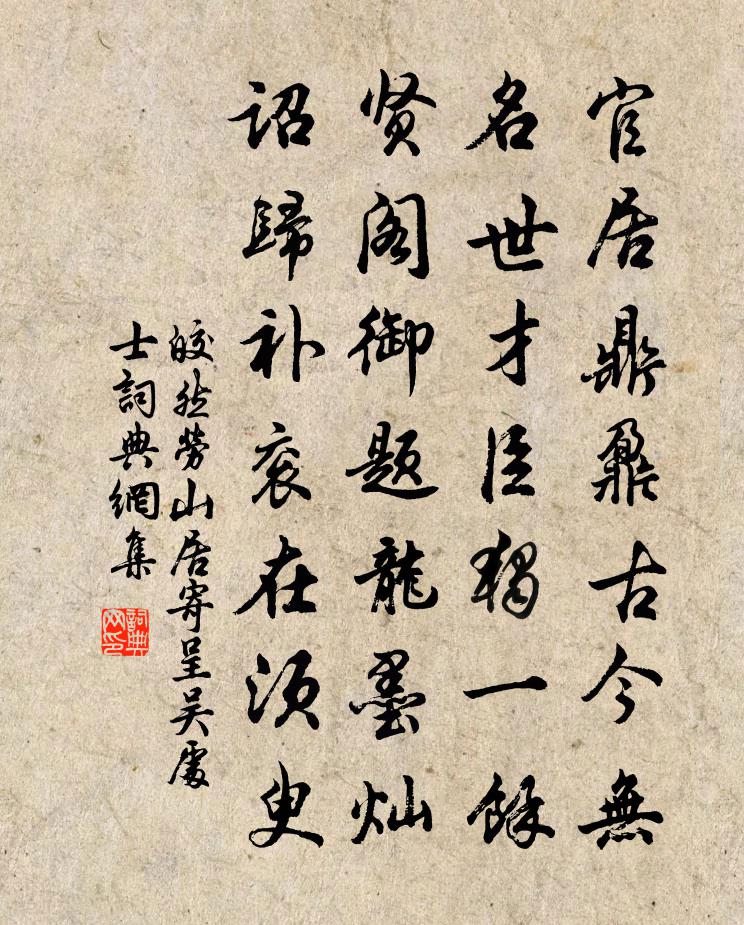 官居鼎鼐古今無
名世才臣獨一餘
贤阁御题龍墨灿
詔歸补衮在须臾
皎然劳山居寄呈吴處
士詞典網集
詞典网印